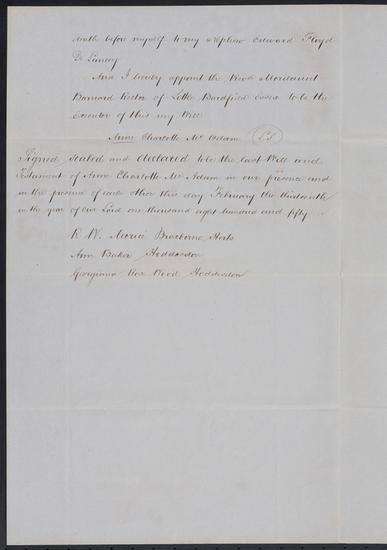 death before myself to my Nephew Edward Floyd
De Lancey
And I hereby appoint the Revd. Mordaunt
Barnard Rector of Little Bardfield Essex to be the
executor of this my Will
Anne Charlotte Mc Adam (LS)
Signed, Sealed and declared to be the last Will and
Testament of Anne Charlotte Mc Adam in our presence and
in the presence of each other this day February the thirteenth
in the year of our Lord one thousand eight hundred and fifty
R. W. Morice Broxborne Herts
Ann Baker Hoddesdon
Georgiana Rose Wood Hoddesdon